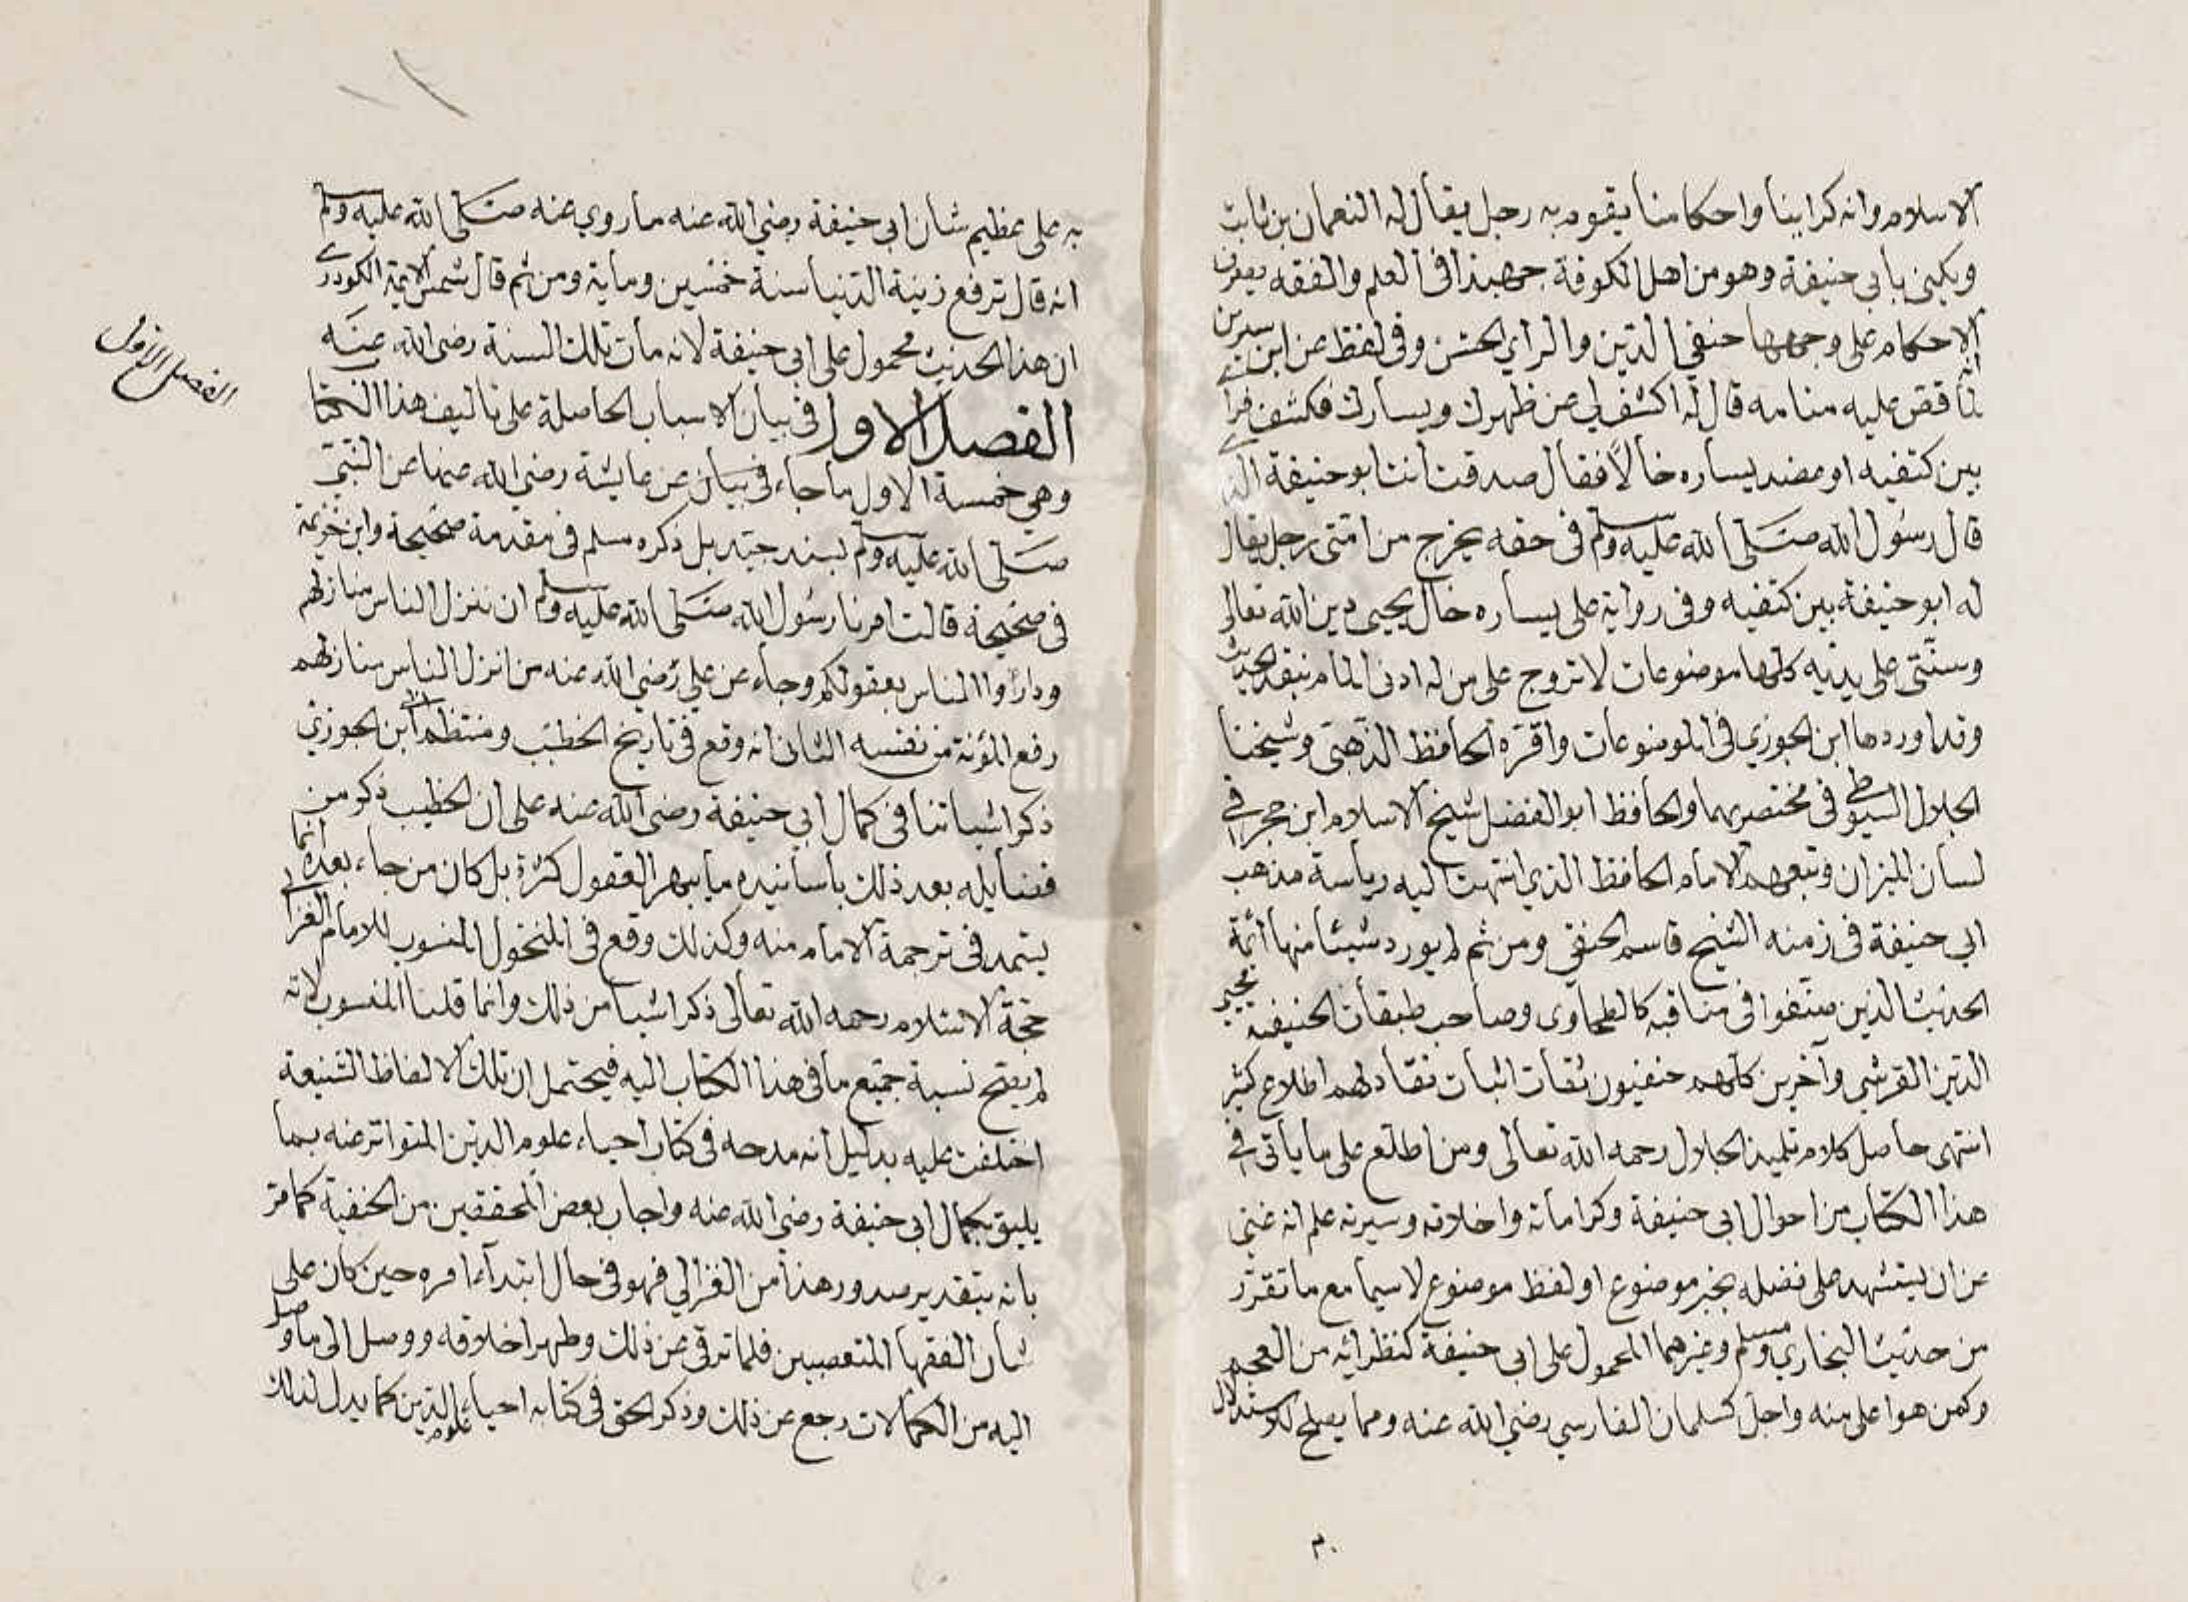 الاسلام وانه كراينا واحكامنا يقوم به رجل يقال له النعمان بن ثابت
ويكنى بأبي حنيفة وهو من اهل الكوفة جهبذا في العلم والفقه يصرف
الاحكام على وجهها حنفي الدين والراي الحسن وفي لفظ عن ابن سيرين
انه لما قص عليه منامه قال له اكشف لي عن ظهرك ويسارك فكشف فرأى
بين كتفيه او عضد يساره خالاً فقال صدقت أنت ابو حنيفة الذي
قال رسول الله صلى الله عليه وسلم في حقه يخرج من امتي رجل يقال
له ابو حنيفة بين كتفيه وفي رواية على يساره خال يحيى دين الله تعالى
وسنتي على يديه كلها موضوعات لا تروج على من له ادنى المام بنقد الحديث
وقد اوردها ابن الجوزي في الموضوعات واقره الحافظ الذهبي وشيخنا
الجلال السيوطي في مختصريهما والحافظ ابو الفضل شيخ الاسلام ابن حجر في
لسان الميزان وتبعهم الامام الحافظ الذي انتهت اليه رياسة مذهب
ابي حنيفة في زمنه الشيخ قاسم الحنفي ومن ثم لم يورد شيئا منها أئمة
الحديث الذين صنفوا في مناقبه كالطحاوي وصاحب طبقات الحنيفية محيي
الدين القرشي وآخرين كلهم حنفيون ثقات اثبات نقاد لهم اطلاع كثير
انتهى حاصل كلام تلميذ الجلال رحمه الله تعالى ومن اطلع على ما يأتي في
هذا الكتاب من احوال ابي حنيفة وكراماته واخلاقه وسيرته علم انه غني
عن ان يستشهد على فضله بخبر موضوع او لفظ موضوع لا سيما مع ما تقرر
من حديث البخاري ومسلم وغيرهما المحمول على ابي حنيفة كنظرائه من العجم
وكمن هو اعلى منه واجل كسلمان الفارسي رضي الله عنه ومما يصلح للاستدلال
به على عظيم شان ابي حنيفة رضي الله عنه ما روي عنه صلى الله عليه وسلم
انه قال ترفع زينة الدنيا سنة خمسين ومأية ومن ثم قال شمس الايمة الكودرى
ان هذا الحديث محمول على ابي حنيفة لانه مات تلك السنة رضي الله عنه
الفصل الاول
الفصل الاول في بيان الاسباب الحاصلة على تاليف هذا الكتا
وهي خمسة الاول ما جاء في بيان عن عايشة رضي الله عنها عن النبي
صلى الله عليه وسلم بسند جيد بل ذكره مسلم في مقدمة صحيحة وابن خزيمة
في صحيحة قالت امرنا رسول الله صلى الله عليه وسلم ان ننزل الناس منازلهم
وداروا الناس بعقولكم وجاء عن علي رضي الله عنه من انزل الناس منازلهم
رفع المؤنة من نفسه الثاني انه وقع في تاريخ الخطيب ومنتظم ابن الجوزي
ذكر اشيا تنافي كمال ابي حنيفة رضي الله عنه على ان الخطيب ذكر من
فضايله بعد ذلك بأسانيده ما يبهر العقول كثرة بل كان من جاء بعده انما
يستمد في ترجمة الامام منه وكذلك وقع في المنخول المنسوب للامام الغزالي
حجة الاسلام رحمه الله تعالى ذكر اشيا من ذلك وانما قلنا المنسوب لانه
لم يصح نسبة جميع ما في هذا الكتاب اليه فيحتمل ان تلك الالفاظ الشنيعة
اختلفت عليه بدليل انه مدحه في كتاب احياء علوم الدين المتواتر عنه بما
يليق بكمال ابي حنيفة رضي الله عنه واجاب بعض المحققين من الحنفية كما مر
بانه بتقدير صدور هذا من الغزالي فهو في حال ابتداء امره حين كان على
شان الفقها المتعصبين فلما ترقى عن ذلك وطهر اخلاقه ووصل الى ما وصل
اليه من الكمالات رجع عن ذلك وذكر الحق في كتابه احياء علوم الدين كما يدل لذلك